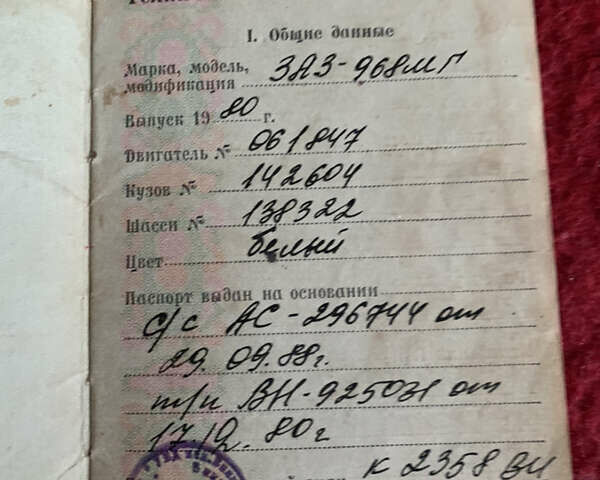 I. Общие данные
Марка, модель, ЗАЗ-968МГ
модификация
Выпуск 1980 г.
Двигатель № 061847
Кузов № 142604
Шасси № 138322
Цвет белый
Паспорт выдан на основании
с/с АС-296744 от
29.09.88г.
т/п ВН-925031 от
17/2. 80г
К 2358 ВИ